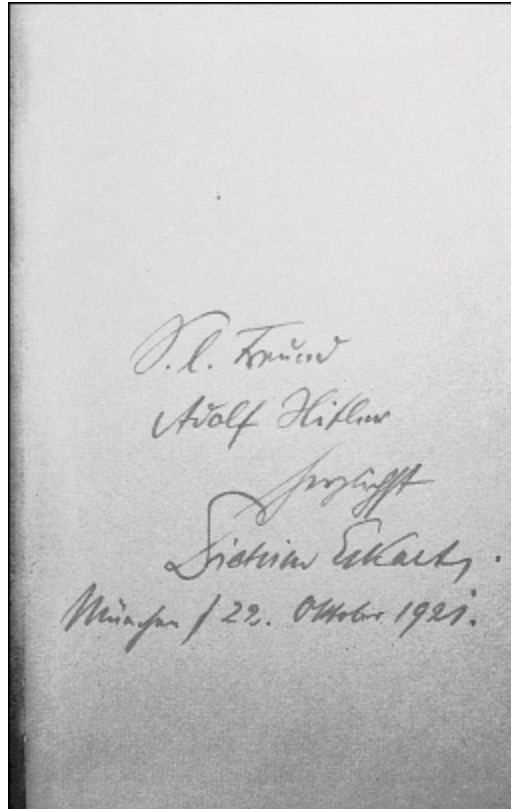 S. l. Freund
Adolf Hitler
herzlichst
Dietrich Eckart,
München / 22. Oktober 1921.